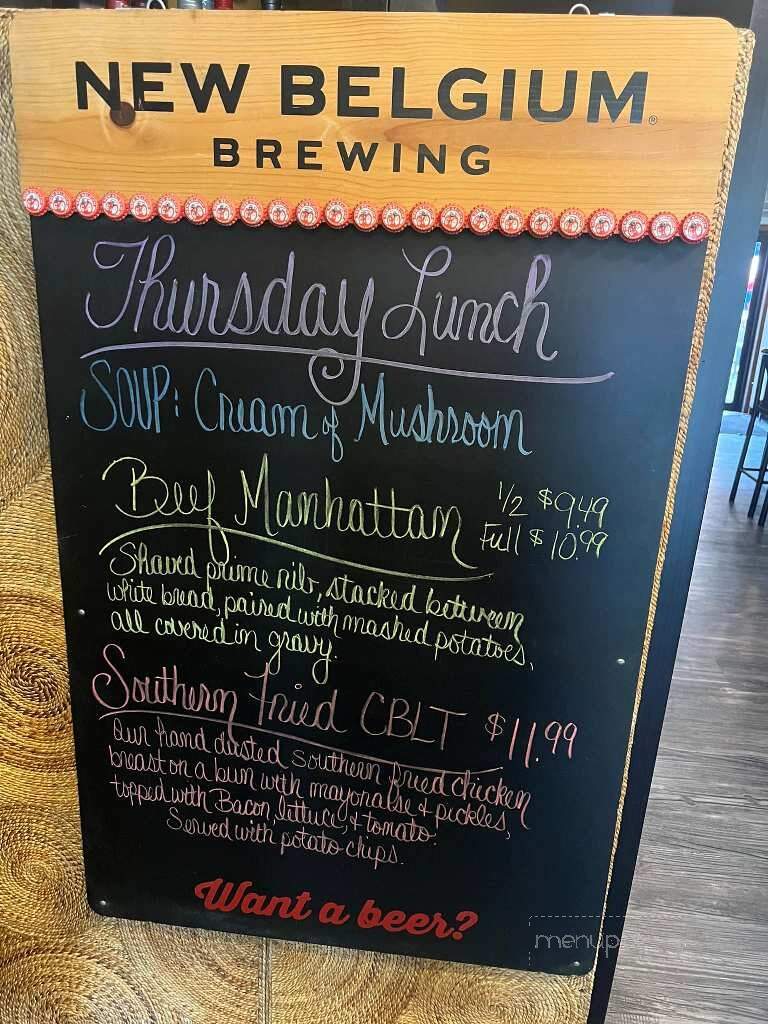 NEW BELGIUM®
BREWING
Thursday Lunch
SOUP: Cream of Mushroom
Beef Manhattan 1/2 $9.49
Full $10.99
Shaved prime rib, stacked between
white bread, paired with mashed potatoes,
all covered in gravy.
Southern Fried CBLT $11.99
Our hand dusted southern fried chicken
breast on a bun with mayonaise & pickles,
topped with Bacon, lettuce, & tomato!
Served with potato chips.
Want a beer?
menup